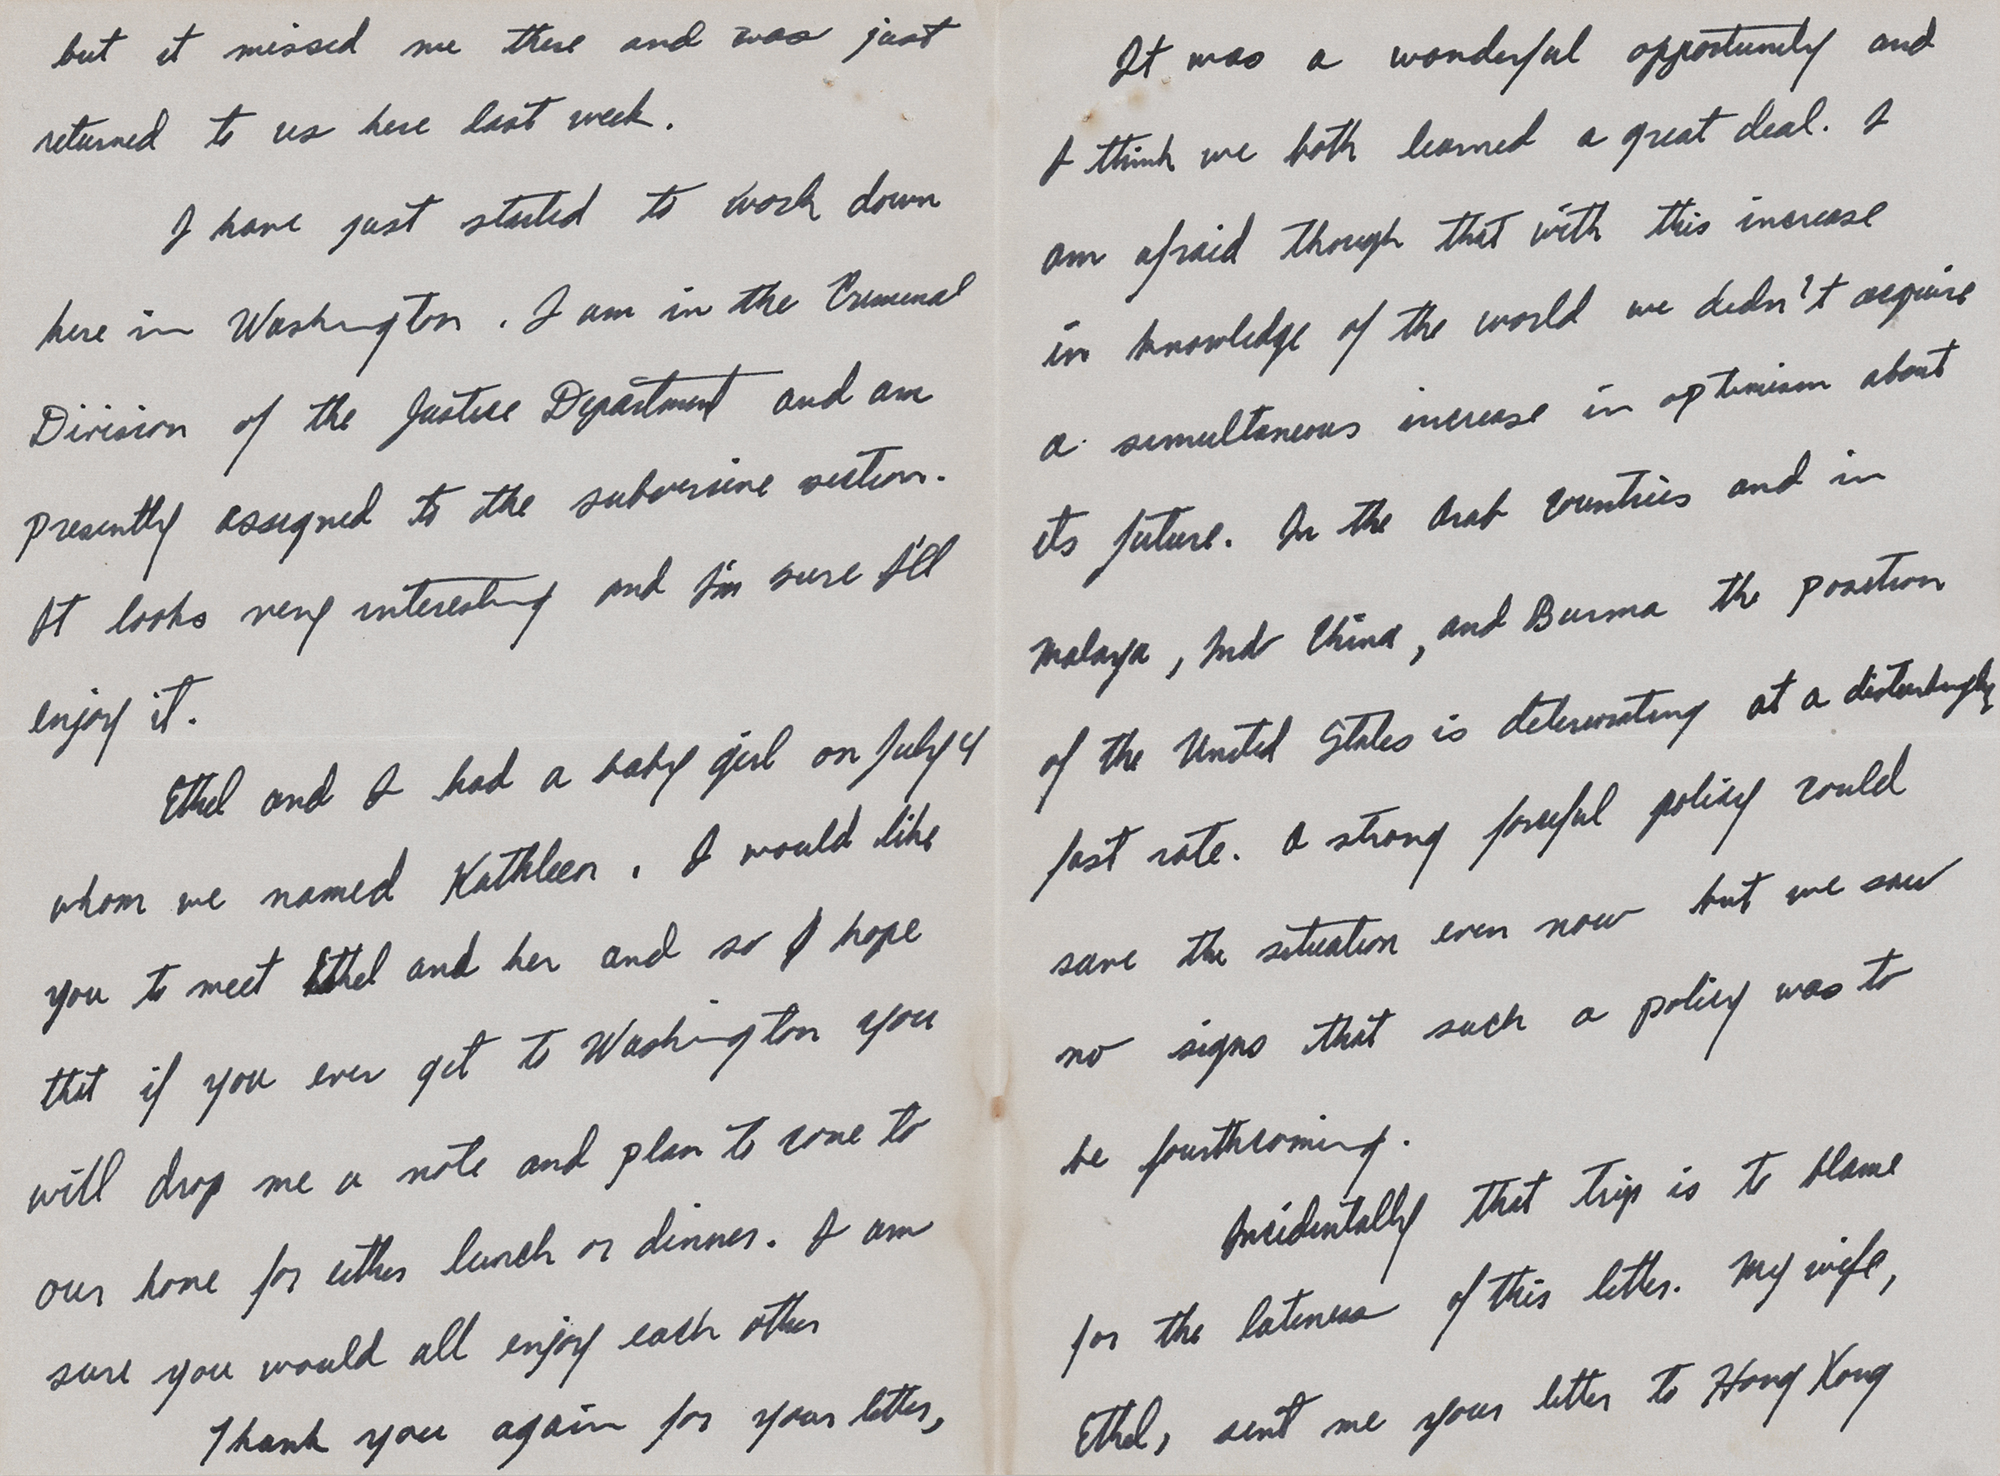 but it missed me there and was just
returned to us here last week.
I have just started to work down
here in Washington. I am in the Criminal
Division of the Justice Department and am
presently assigned to the subversive section.
It looks very interesting and I'm sure I'll
enjoy it.
Ethel and I had a baby girl on July 4
whom we named Kathleen. I would like
you to meet Ethel and her and so I hope
that if you ever get to Washington you
will drop me a note and plan to come to
our home for either lunch or dinner. I am
sure you would all enjoy each other
Thank you again for your letter,
It was a wonderful opportunity and
I think we both learned a great deal. I
am afraid though that with this increase
in knowledge of the world we didn't acquire
a simultaneous increase in optimism about
its future. In the Arab countries and in
Malaya, Indo China, and Burma the position
of the United States is deteriorating at a disturbingly
fast rate. A strong forceful policy could
save the situation even now but we saw
no signs that such a policy was to
be fourthcoming.
Incidentally that trip is to blame
for the lateness of this letter. My wife,
Ethel, sent me your letter to Hong Kong